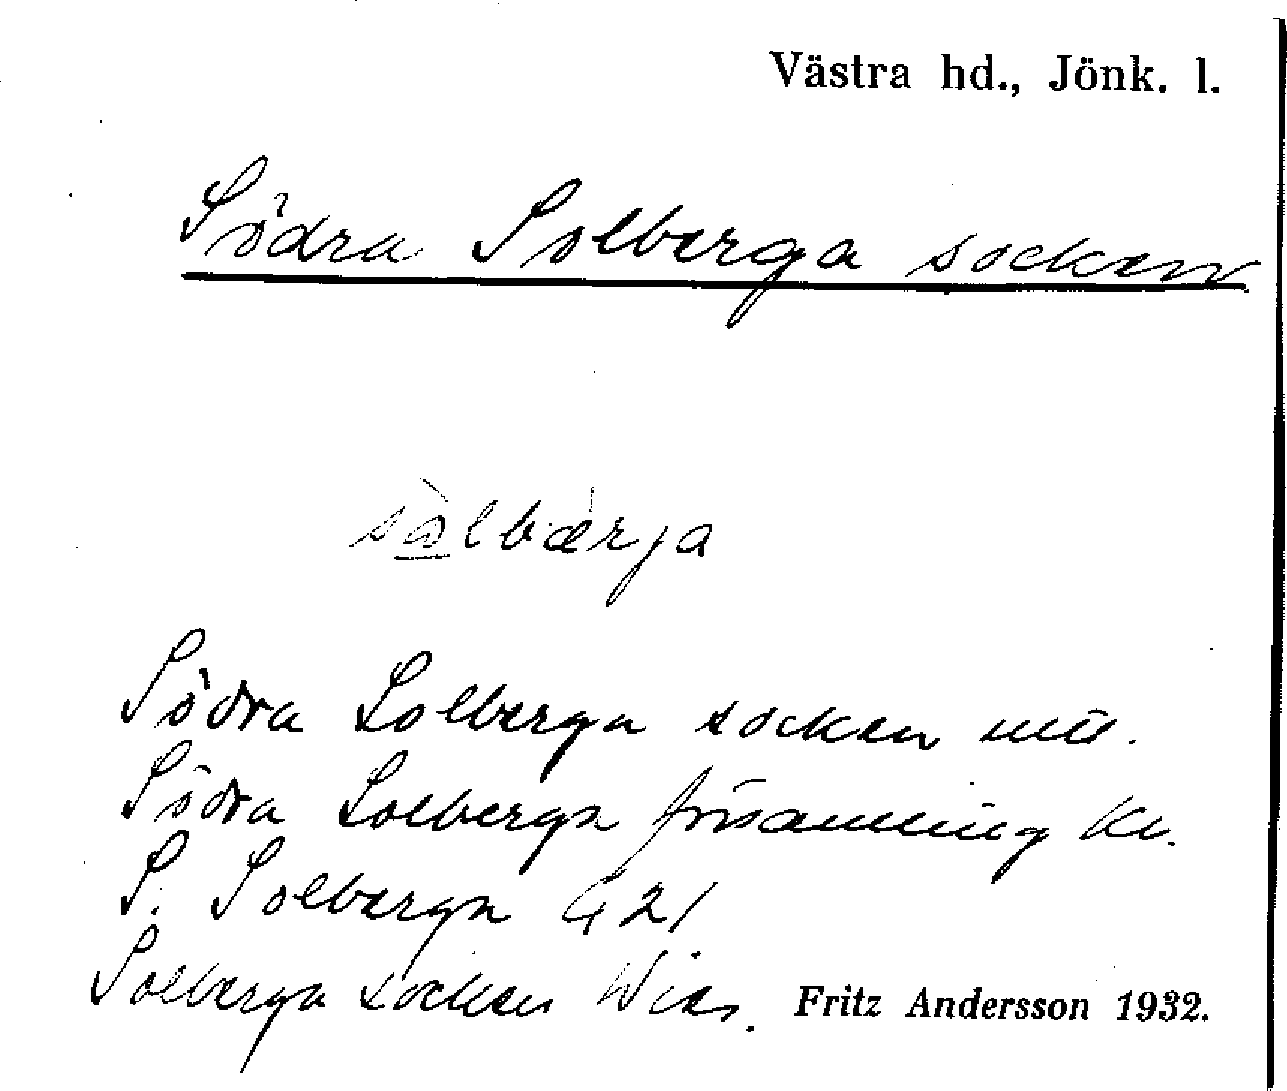 Västra hd., Jönk. l.
Södra Solberga socken
sòlbærja
Södra Solberga socken
Södra Solberga församling Kv.
S. Solberga G 21
Solberga socken Wies. Fritz Andersson 1932.